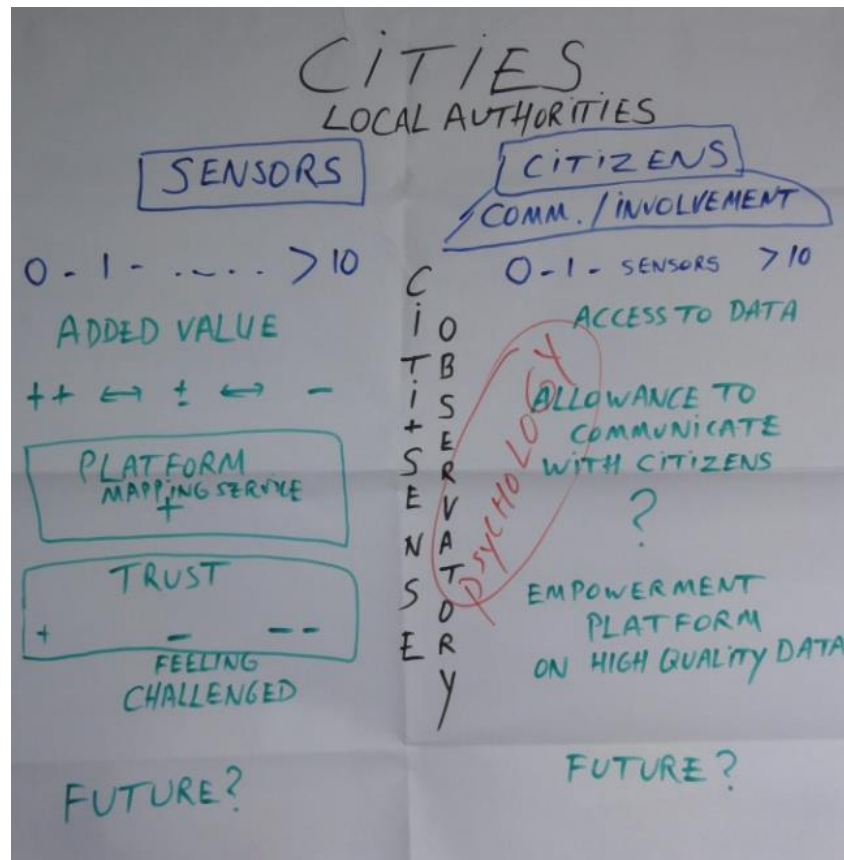 CiTiES
LOCAL AUTHORITIES
SENSORS
0 - 1 - ...... > 10
ADDED VALUE
++ ↔ ± ↔ -
PLATFORM
MAPPING SERVICE
+
TRUST
+ - --
FEELING
CHALLENGED
FUTURE?
CiTi+SENSE
OBSERVATORY
PSYCHOLOGY
CiTiZENS
COMM. / INVOLVEMENT
0 - 1 - SENSORS > 10
ACCESS TO DATA
ALLOWANCE TO
COMMUNICATE
WITH CITIZENS
?
EMPOWERMENT
PLATFORM
ON HIGH QUALITY DATA
FUTURE?